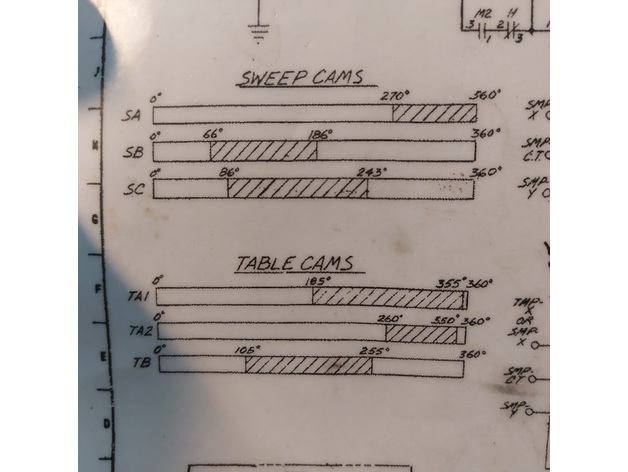 M2 H
3 1 2 X 3
J
SWEEP CAMS
0° 270° 360°
SA
SMP-
X
H
0° 66° 186° 360°
SB
SMP-
C.T.
0° 86° 243° 360°
SC
SMP-
Y
G
TABLE CAMS
0° 185° 355° 360°
TA1
F
TMP-
X
OR
SMP-
X
0° 260° 350° 360°
TA2
E
0° 105° 255° 360°
TB
SMP-
CT
SMP-
Y
D